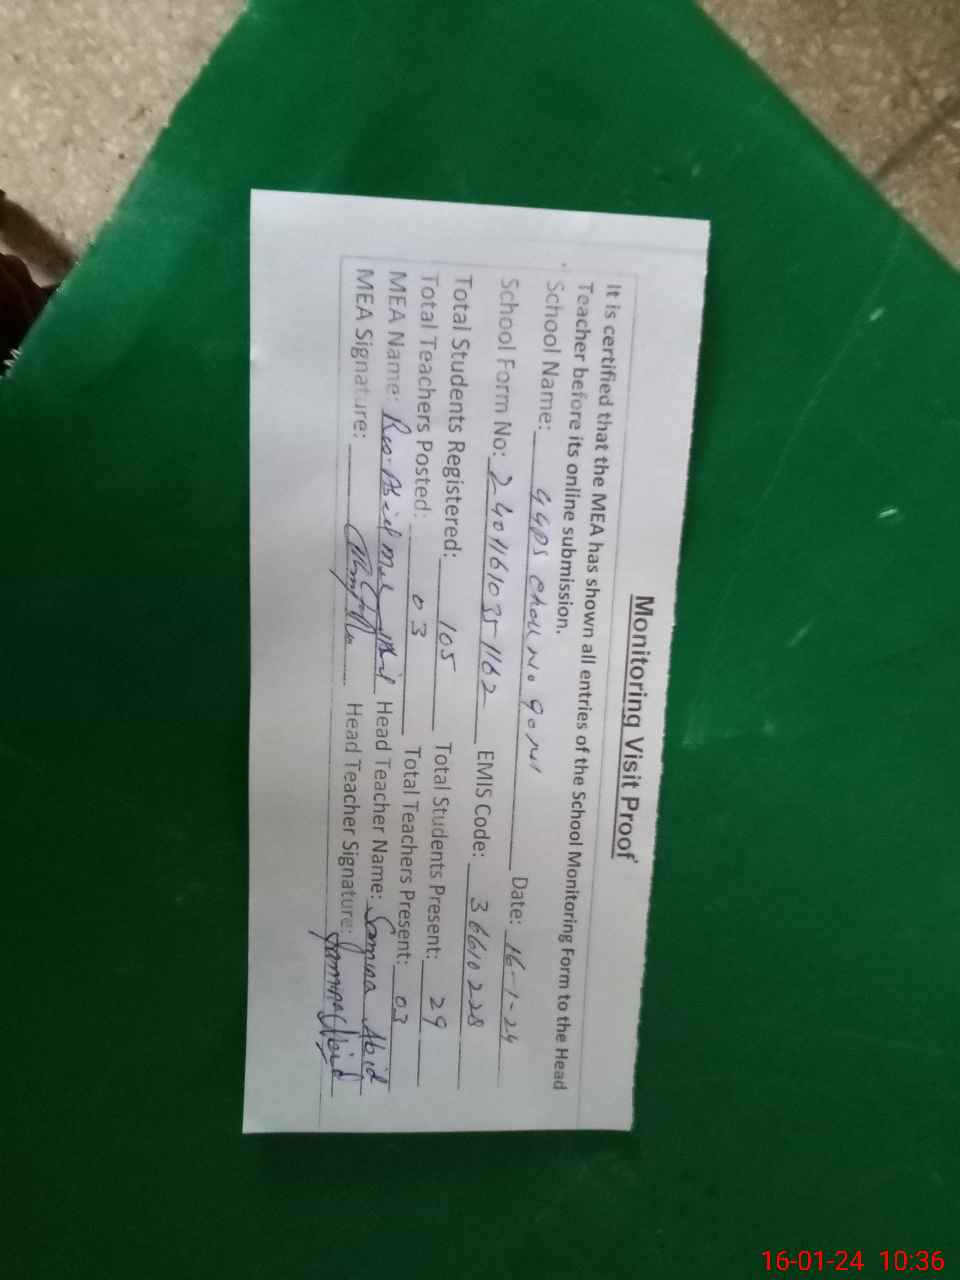 Monitoring Visit Proof
It is certified that the MEA has shown all entries of the School Monitoring Form to the Head
Teacher before its online submission.
School Name: GGPS Chak No. 90 Date: 16-1-24
School Form No: 2401161035 1162 EMIS Code: 36610228
Total Students Registered: 105 Total Students Present: 29
Total Teachers Posted: 03 Total Teachers Present: 03
MEA Name: Rao Abid Head Teacher Name: Samina Abid
MEA Signature: Head Teacher Signature: Samina Abid
16-01-24 10:36